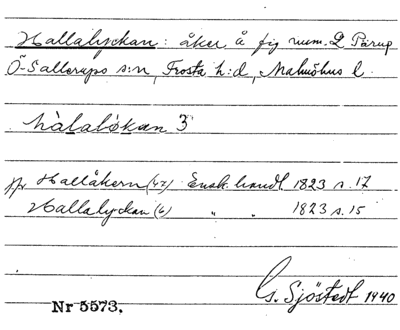 Hallalyckan: åker å fig num. 2 Pärup
Ö-Sallerups s:n, Frosta h:d, Malmöhus l.
hàlalökan 3
Hallåkern (42) Ensk. handl. 1823 s. 17
Hallalyckan (6) " " 1823 s. 15
G. Sjöstedt 1940
Nr 5573.